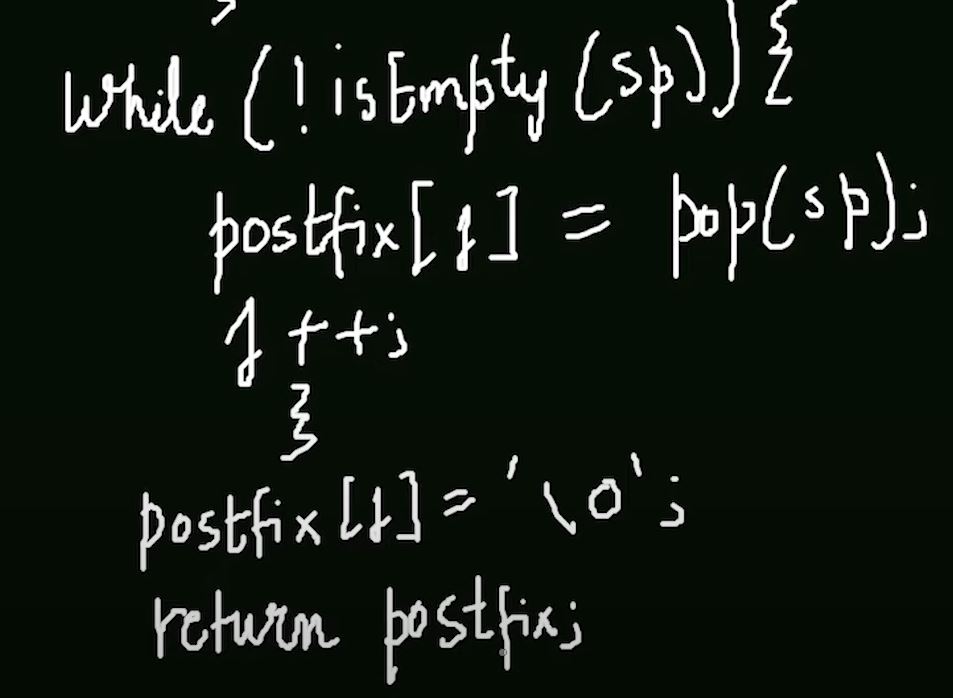 }
while (!isEmpty(sp)){
postfix[j] = pop(sp);
j++;
}
postfix[j]='\0';
return postfix;